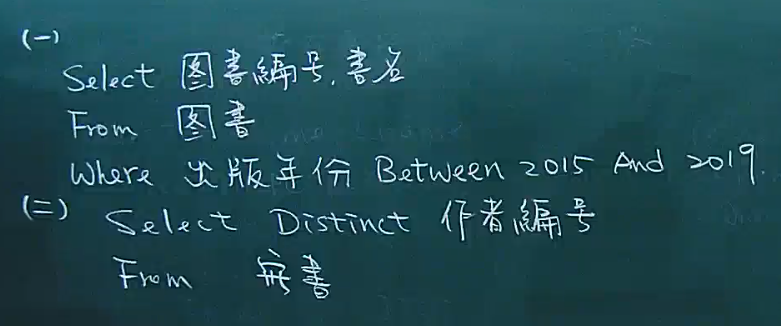 (一)
Select 图書編号,書名
From 图書
Where 出版年份 Between 2015 And 2019.
(二) Select Distinct 作者編号
From 寫書